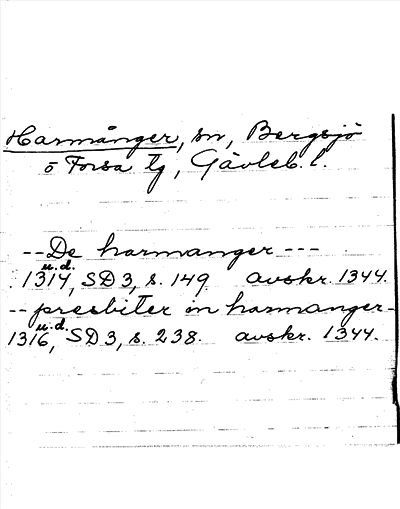 Harmånger, sn, Bergsjö
o Forsa tg, Gävleb. l.
-- De harmanger ---
u.d.
1314, SD 3, s. 149. avskr. 1344.
-- presbiter in harmanger -
u.d.
1316, SD 3, s. 238. avskr. 1344.